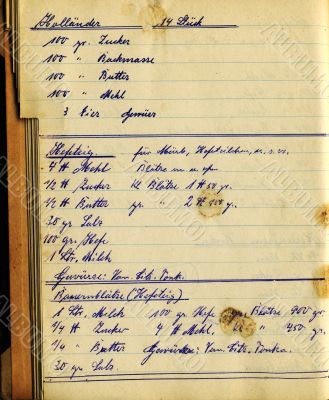 Holländer 14 Stück
100 gr. Zucker
100 " Backmasse
100 " Butter
100 " Mehl
3 Eier Gewürz
Hefeteig für
7 ℔ Mehl Blätze
1/2 ℔ Zucker kl Blätze 1 ℔ 50 gr.
1/2 ℔ Butter gr. " 2 ℔ 100 gr.
30 gr Salz
100 gr. Hefe
1 Ltr. Milch
Gewürze: Van. Citr. Tonka.
Bauernblätze (Hefeteig)
1 Ltr. Milch 100 gr Hefe Blätze 900 gr.
3/4 ℔ Zucker 4 ℔ Mehl. " 450 gr.
1/4 " Butter Gewürze: Van. Citr. Tonka.
30 gr Salz